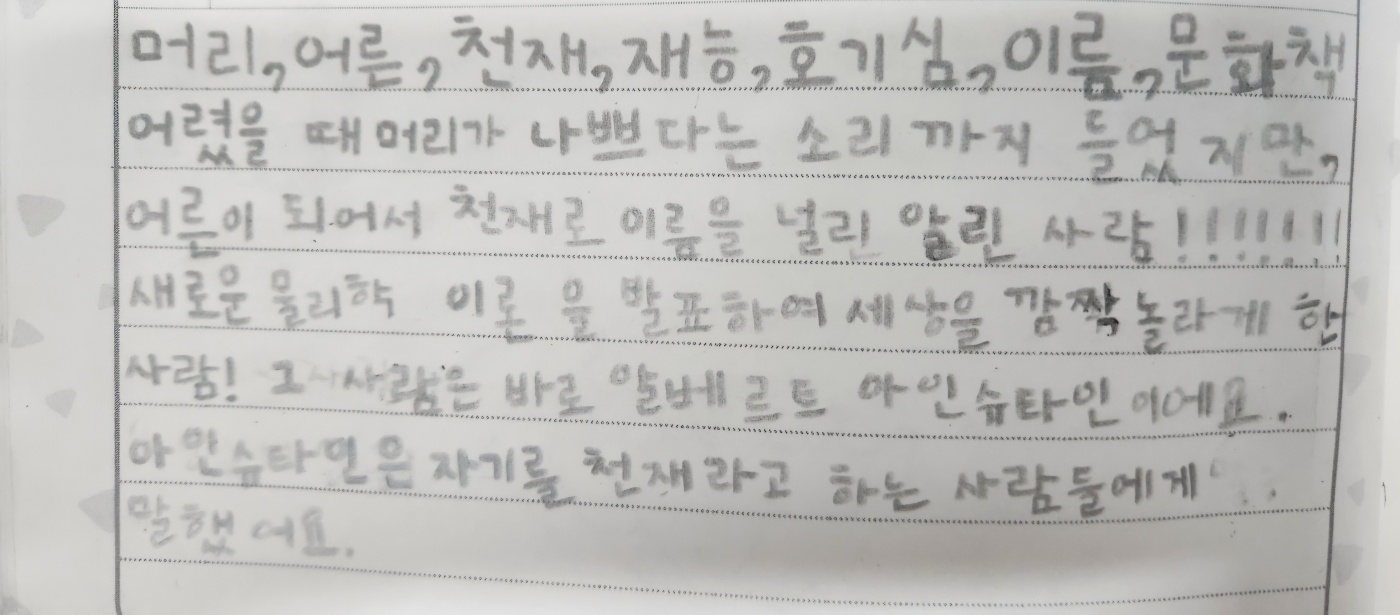 머리, 어른, 천재, 재능, 호기심, 이름, 문화책
어렸을 때 머리가 나쁘다는 소리 까지 들었지만,
어른이 되어서 천재로 이름을 널린 알린 사람!!!!!!!
새로운 물리학 이론을 발표하여 세상을 깜짝 놀라게 한
사람! 그 사람은 바로 알베르트 아인슈타인이에요.
아인슈타인은 자기를 천재라고 하는 사람들에게
말했어요.